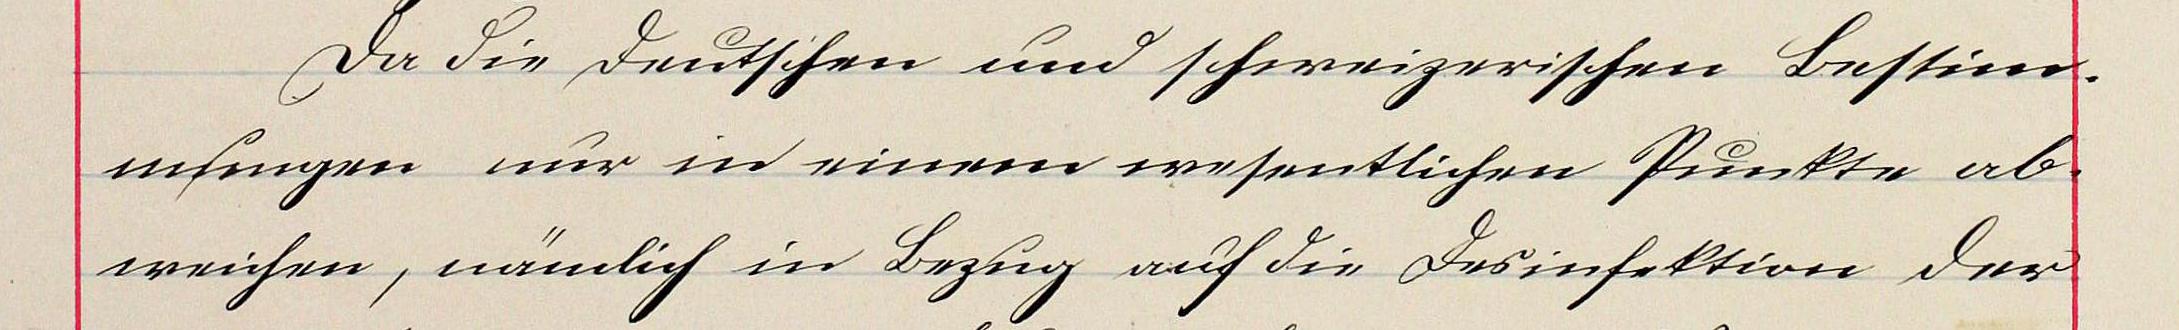 Da die deutschen und schweizerischen Bestim-
mungen nur in einem wesentlichen Punkte ab-
weichen, nämlich in Bezug auf die Desinfektion der